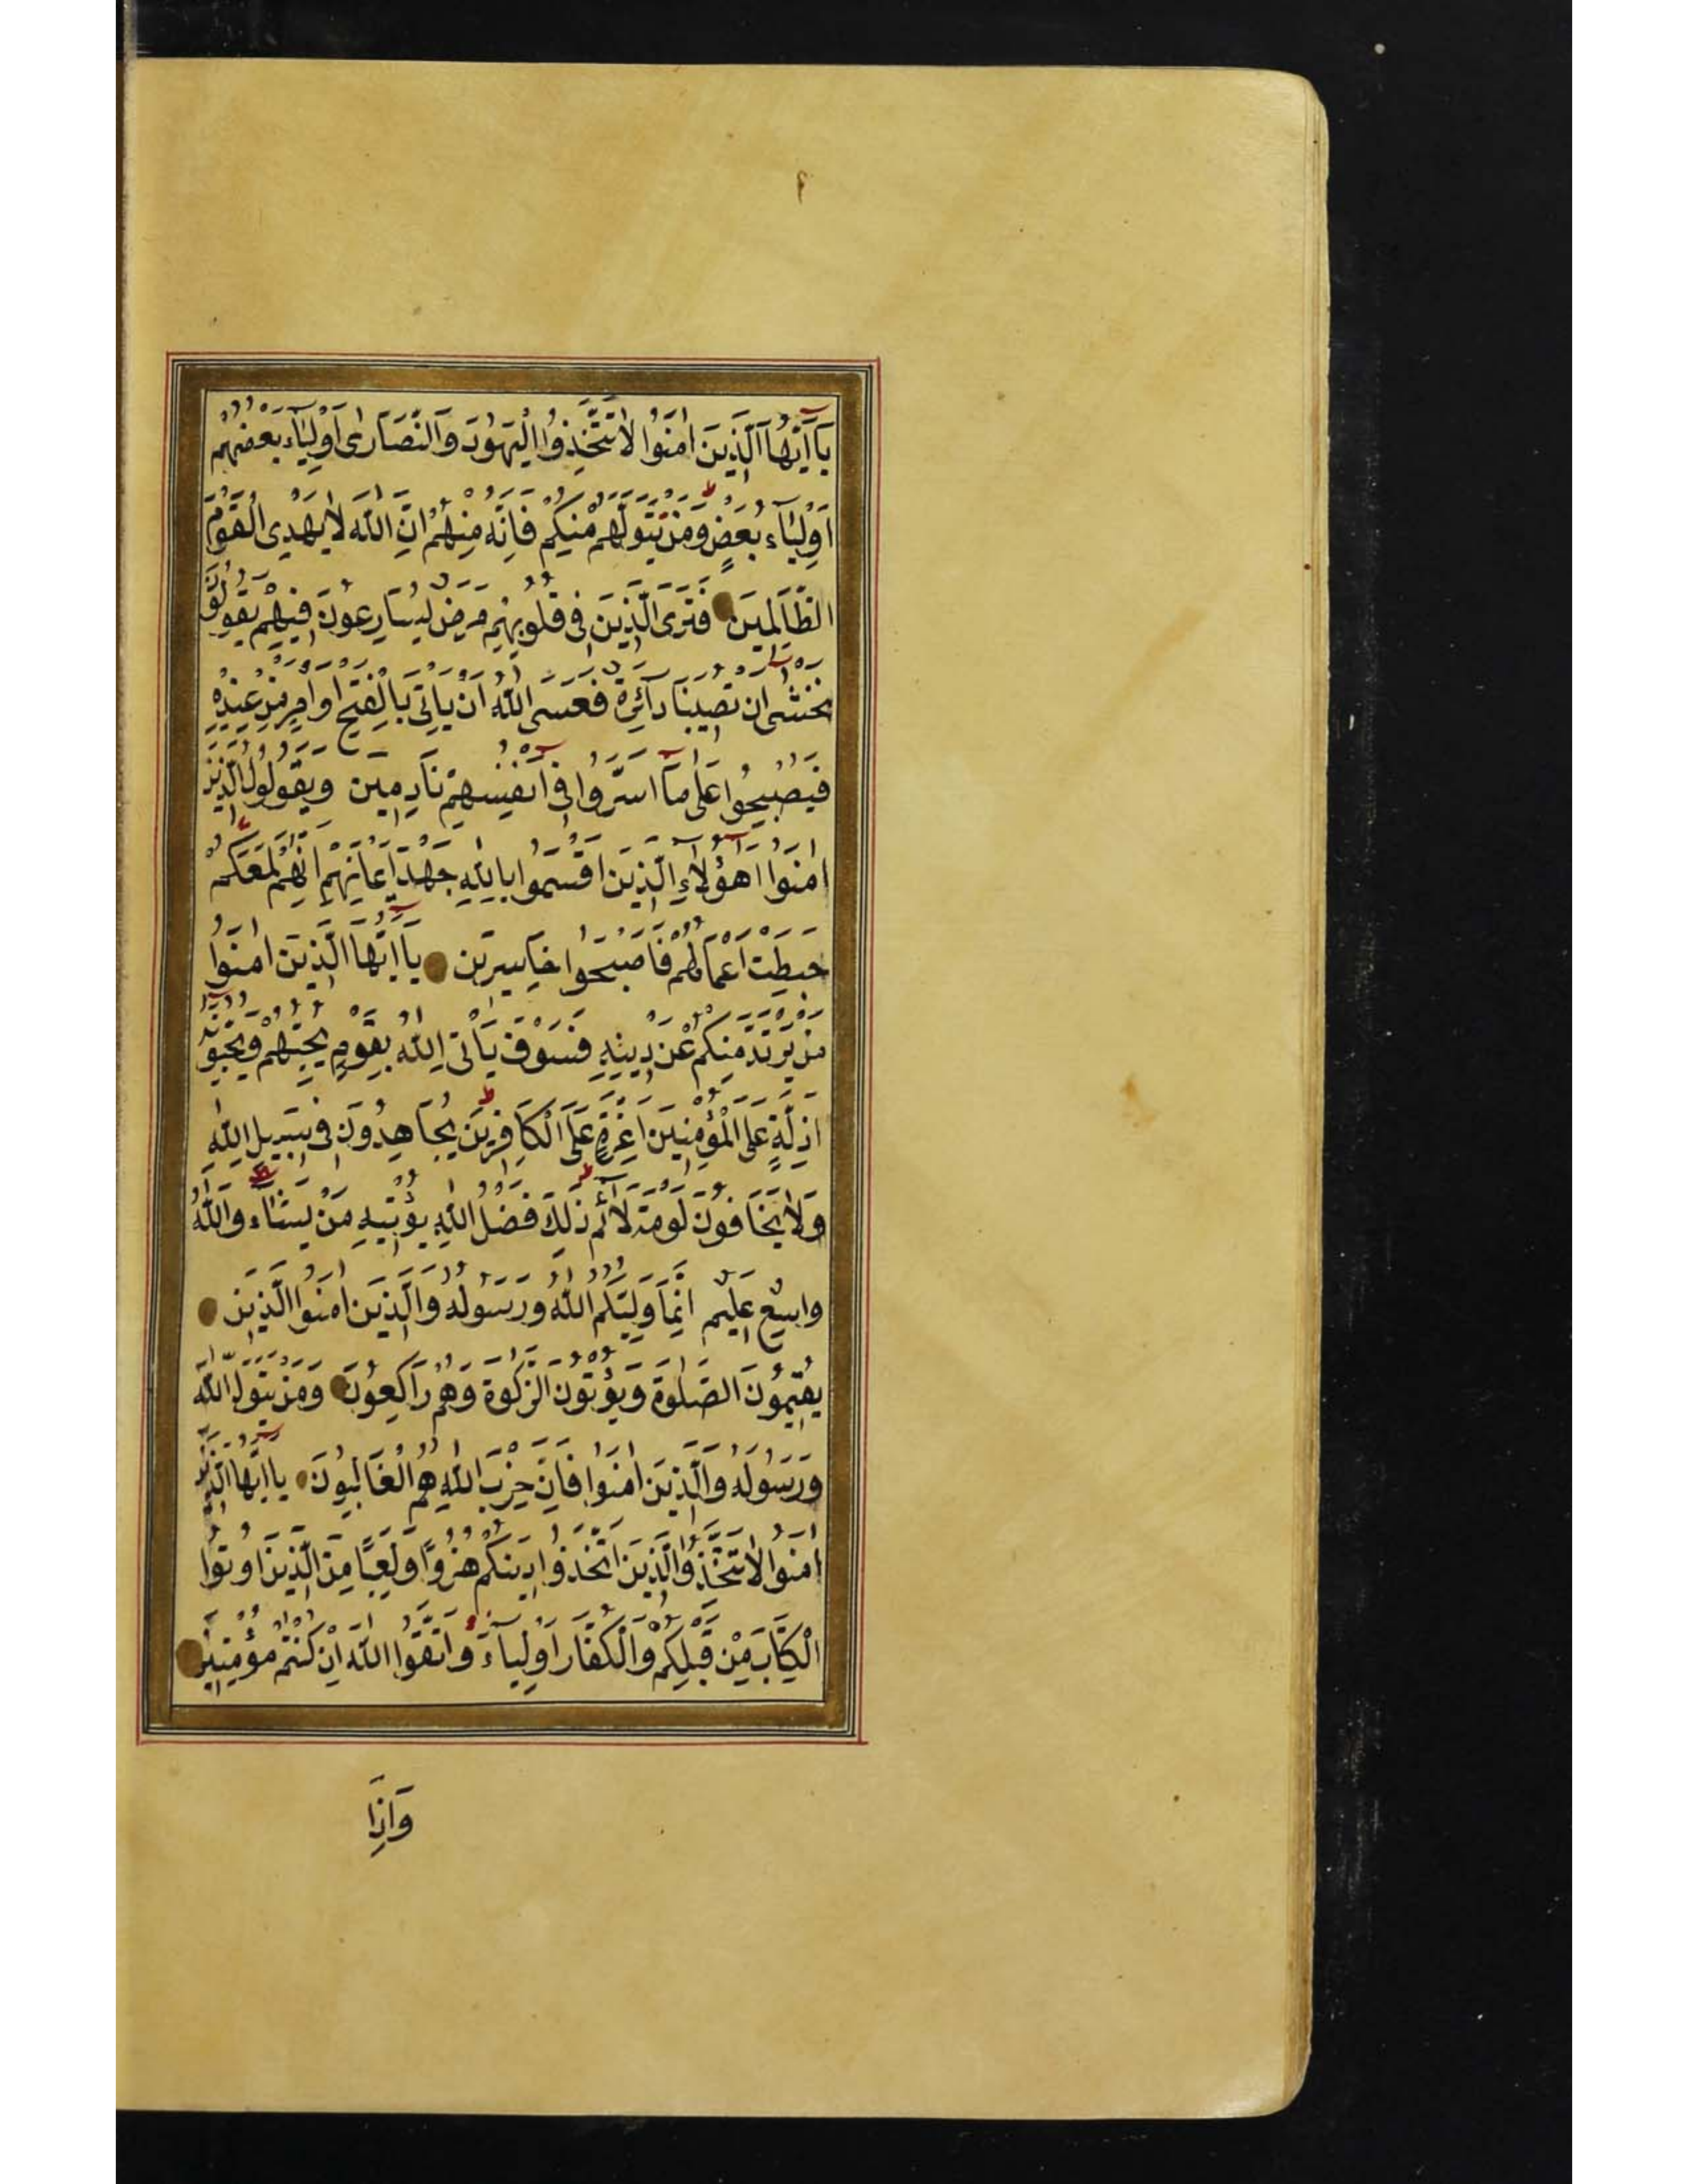 يَا أَيُّهَا الَّذِينَ امَنُوا لَا تَتَّخِذُوا الْيَهُودَ وَالنَّصَارٰى اَوْلِيَآءَ بَعْضُهُمْ
اَوْلِيَآءُ بَعْضٍ وَمَنْ يَتَوَلَّهُمْ مِنْكُمْ فَاِنَّهُ مِنْهُمْ اِنَّ اللّٰهَ لَا يَهْدِى الْقَوْمَ
الظَّالِمِينَ فَتَرَى الَّذِينَ فِى قُلُوبِهِمْ مَرَضٌ يُسَارِعُونَ فِيهِمْ يَقُولُونَ
نَخْشٰى اَنْ تُصِيبَنَا دَآئِرَةٌ فَعَسَى اللّٰهُ اَنْ يَاْتِىَ بِالْفَتْحِ اَوْ اَمْرٍ مِنْ عِنْدِهِ
فَيُصْبِحُوا عَلٰى مَآ اَسَرُّوا فِى اَنْفُسِهِمْ نَادِمِينَ وَيَقُولُ الَّذِينَ
اٰمَنُوا اَهٰؤُلَاءِ الَّذِينَ اَقْسَمُوا بِاللّٰهِ جَهْدَ اَيْمَانِهِمْ اِنَّهُمْ لَمَعَكُمْ
حَبِطَتْ اَعْمَالُهُمْ فَاَصْبَحُوا خَاسِرِينَ يَا اَيُّهَا الَّذِينَ اٰمَنُوا
مَنْ يَرْتَدَّ مِنْكُمْ عَنْ دِينِهِ فَسَوْفَ يَاْتِى اللّٰهُ بِقَوْمٍ يُحِبُّهُمْ وَيُحِبُّونَهُ
اَذِلَّةٍ عَلَى الْمُؤْمِنِينَ اَعِزَّةٍ عَلَى الْكَافِرِينَ يُجَاهِدُونَ فِى سَبِيلِ اللّٰهِ
وَلَا يَخَافُونَ لَوْمَةَ لَآئِمٍ ذٰلِكَ فَضْلُ اللّٰهِ يُؤْتِيهِ مَنْ يَشَآءُ وَاللّٰهُ
وَاسِعٌ عَلِيمٌ اِنَّمَا وَلِيُّكُمُ اللّٰهُ وَرَسُولُهُ وَالَّذِينَ اٰمَنُوا الَّذِينَ
يُقِيمُونَ الصَّلٰوةَ وَيُؤْتُونَ الزَّكٰوةَ وَهُمْ رَاكِعُونَ وَمَنْ يَتَوَلَّ اللّٰهَ
وَرَسُولَهُ وَالَّذِينَ اٰمَنُوا فَاِنَّ حِزْبَ اللّٰهِ هُمُ الْغَالِبُونَ يَا اَيُّهَا الَّذِينَ
اٰمَنُوا لَا تَتَّخِذُوا الَّذِينَ اتَّخَذُوا دِينَكُمْ هُزُوًا وَلَعِبًا مِنَ الَّذِينَ اُوتُوا
الْكِتَابَ مِنْ قَبْلِكُمْ وَالْكُفَّارَ اَوْلِيَآءَ وَاتَّقُوا اللّٰهَ اِنْ كُنْتُمْ مُؤْمِنِينَ
وَاِذَا